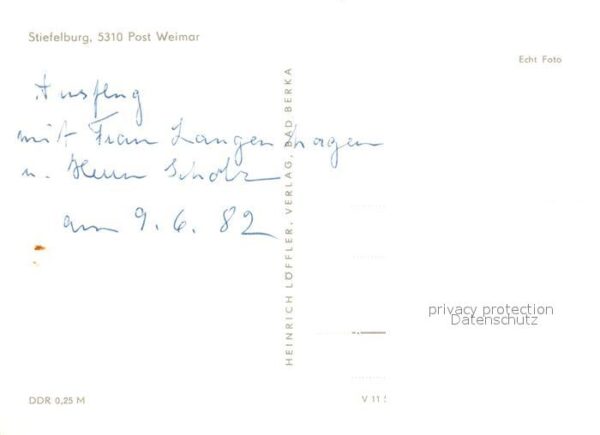 Stiefelburg, 5310 Post Weimar
Echt Foto
Ausflug
mit Frau Langenhagen
u. Herrn Scholz
am 9. 6. 82
HEINRICH LÖFFLER, VERLAG, BAD BERKA
privacy protection
Datenschutz
DDR 0,25 M
V 11